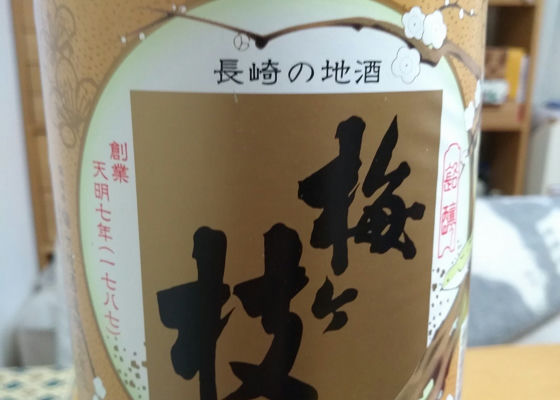 長崎の地酒
梅ヶ枝
創業
天明七年(一七八七)
銘醸